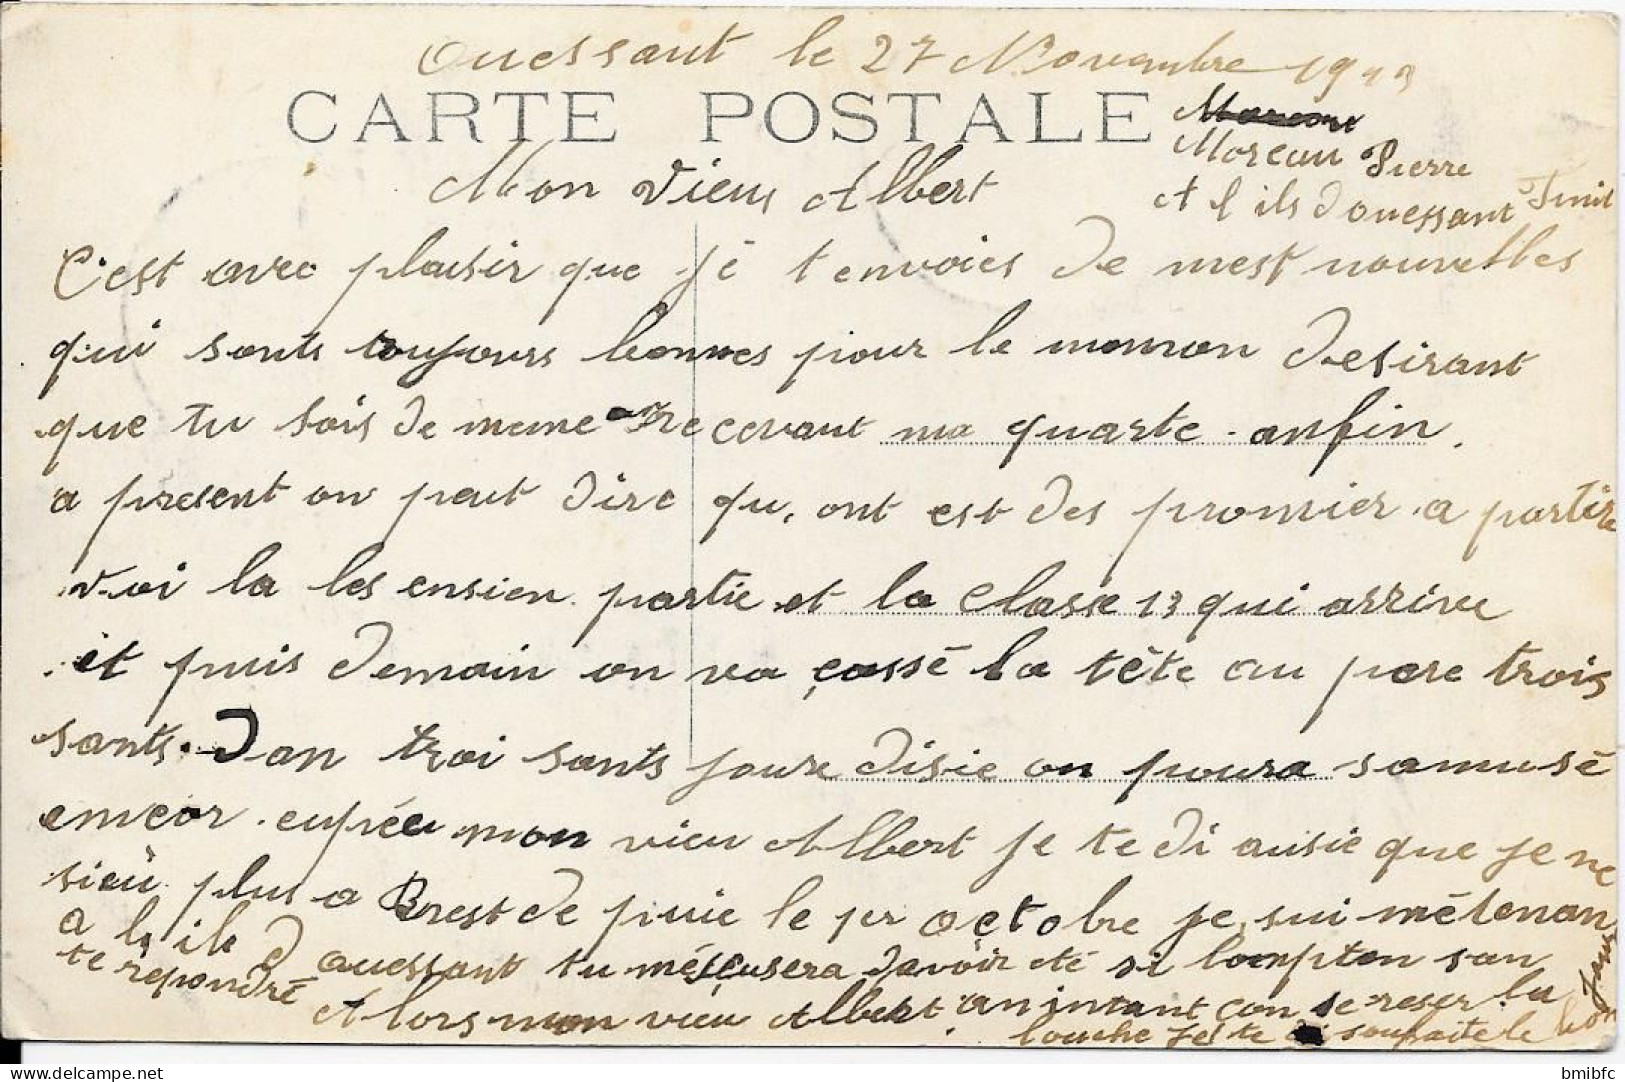 Ouessant le 27 Novembre 1913
CARTE POSTALE
Moreau Pierre
A l ils Douessant Finit
Mon vieux Albert
C'est avec plaisir que je t envoies de mest nouvelles
qui sonts toujours bonnes pour le moman desirant
que tu sois de meme Recevant ma quarte anfin.
a present on peut dire qu, ont est des promier a partire
voi la les ensien partie et la classe 13 qui arrive
et puis demain on va cassé la tête au pere trois
sants. Dan troi sants joure disie on poura samusé
enveor. euprée mon vieu Albert je te di ausie que je ne
sieu plus a Brest de puie le 1er octobre je sui métenan
a la ile d ouessant tu méscusera davoir eté si lompten san
te répondre
Alors mon vieu Albert an intant con se reser la
louche je te souhaite le bon
jour
bmibfc